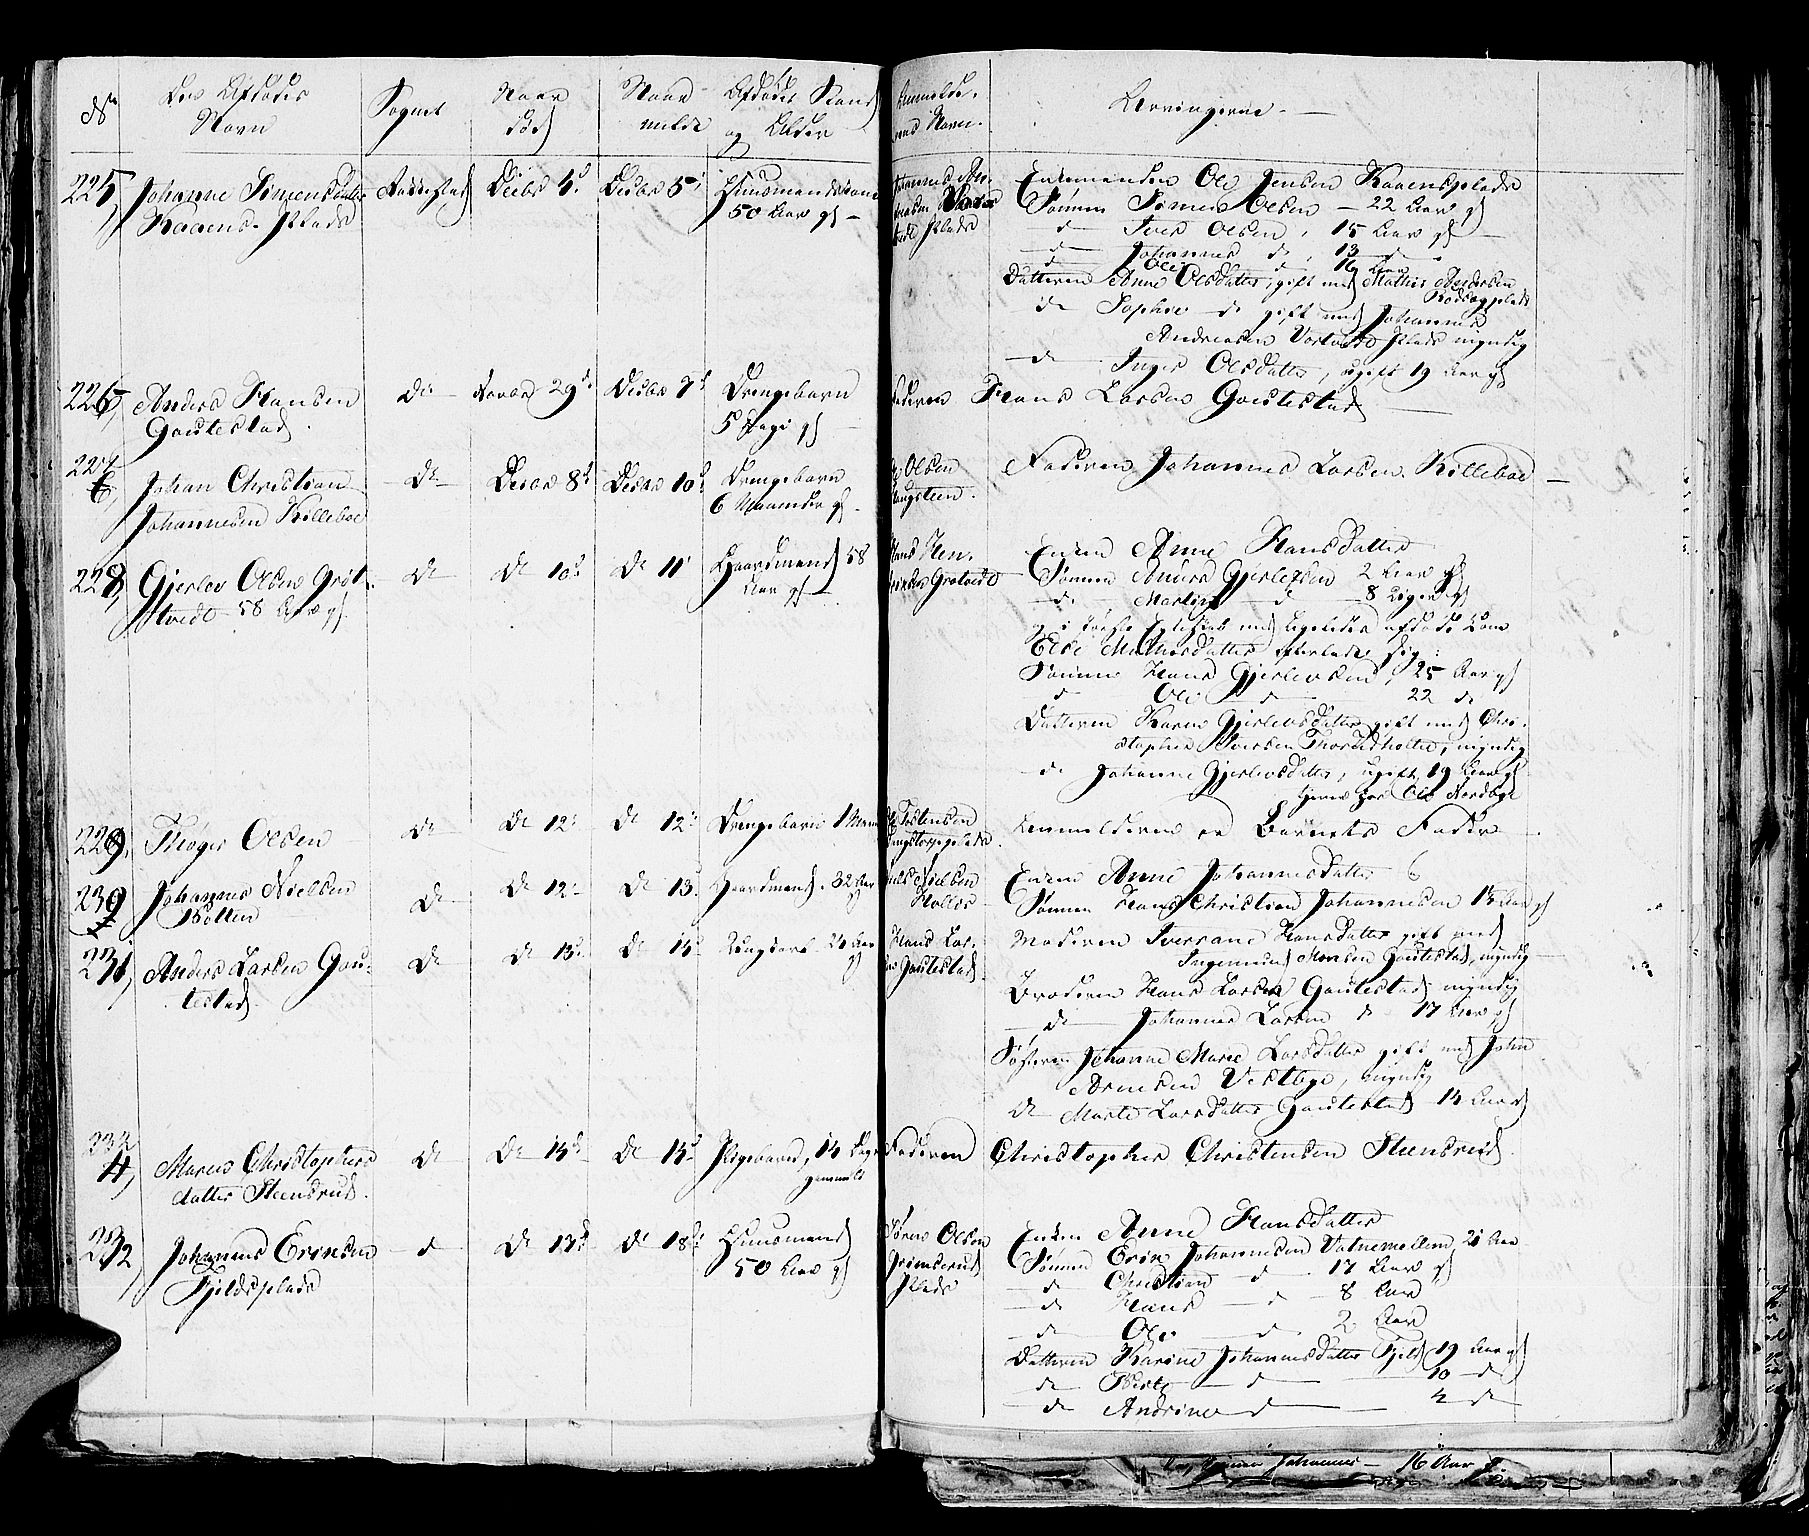 No
Den Afdødes
Navn
Sognet
Naar
død
Naar
meldt
Afdødes Stand
og Alder
Anmelde-
rens Navn.
Arvingerne
225, Johanne Simensdatter
Kaaens Plads
Rakkestad
Decbr 4d
Decbr 5d
Huusmandskone
50 Aar gl
Andreasen
Plads
Enkemanden Ole Jensen Kaaensplads
Sønnen Simen Olsen 22 Aar gl
d Iver Olsen, 15 Aar gl
d Johannes d, 13 d
d Ole d 16 Aar
Datteren Anne Olsdatter, gift med Mathis Andersen
d Sophie d gift med Johannes
Andreasen Vortvedt Plads myndig
d Inger Olsdatter, ugift 19 Aar gl
226, Anders Hansen
Gautestad
do
Novbr 29d
Decbr 7d
Drengebarn
5 Dage gl
Faderen Hans Larsen Gautestad
227
Johan Christian
Johannesen Killeboe
do
Decbr 8d
Decbr 10d
Drengebarn
6 Maaneder gl
Olsen
Haugsteen.
Faderen Johannes Larsen Killeboe
228, Gjerlov Olsen Grøt-
tvedt 58 Aar gl
do
do 10d
do 11
Gaardmand 58
Aar gl
Hans Hen-
Grøtvedt
Enken Anne Hansdatter
Sønnen Anders Gjerløvsen 2 Aar gl
d Martin d 8 Uger gl
og i første Egteskab med ligeledes afdøde Kone
Else Mathisdatter efterladt sig:
Sønnen Hans Gjerlevsen, 25 Aar gl
d Ole d 22 d
Datteren Karen Gjerlevsdatter gift med Chri-
stopher Iversen, myndig
d Johanne Gjerlevsdatter, ugift, 19 Aar gl
tjener hos Ole Nordbye
229, Thøger Olsen
do
do 12
do 12
Drengebarn 1
Tostensen
Anmelderen er Barnets Fader
230 Johannes Nielsen
Holten
do
do 12
do 13
Gaardmand, 32 Aar
gl
Nielsen
Holter
Enken Anne Johannesdatter
Sønnen Hans Christian Johannesen 13 Aar gl
231, Anders Larsen Gau-
testad.
do
do 13
do 15
Ungkarl 21 Aar
gl
Hans Lar-
sen Gautestad
Moderen Iverane Hansdatter gift med
Ingemund Monsen Gautestad, myndig
Broderen Hans Larsen Gautestad myndig
d Johannes Larsen d 17 Aar gl
Søsteren Johanne Marie Larsdatter gift med John
Arnesen Vestbye, myndig
do Marte Larsdatter Gautestad 14 Aar
232
Maren Christophers
datter Steensrud.
do
do 15d
do 15d
Pigebarn, 14 Dage
gammelt
Faderen Christopher Christensen Steensrud.
232 Johannes Ericsen
Fjeldsplads
d
do 17d
do 18d
Huusmand
50 Aar gl
Søren Olsen
Grimsrud
Plads
Enken Anne Hansdatter
Sønnen Eric Johannesen Vatnemollen 21 Aar
d Christian d 17 Aar gl
d Hans d 8 Aar
d Ole d 2 Aar
Datteren Karine Johannesdatter Fjeld 19 Aar gl
d Berte d 10 d
d Andrine d 4 d
Johannes 16 Aar